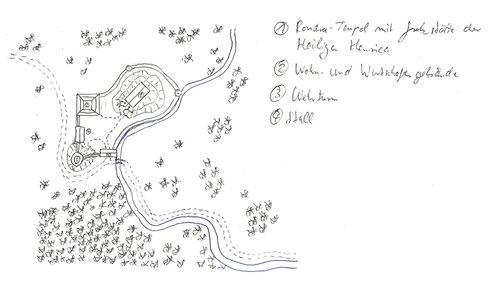 1 Rondra-Tempel mit Grabstätte der
Heiligen Henrica
2 Wohn- und Wirtschaftsgebäude
3 Wehrturm
4 Stall